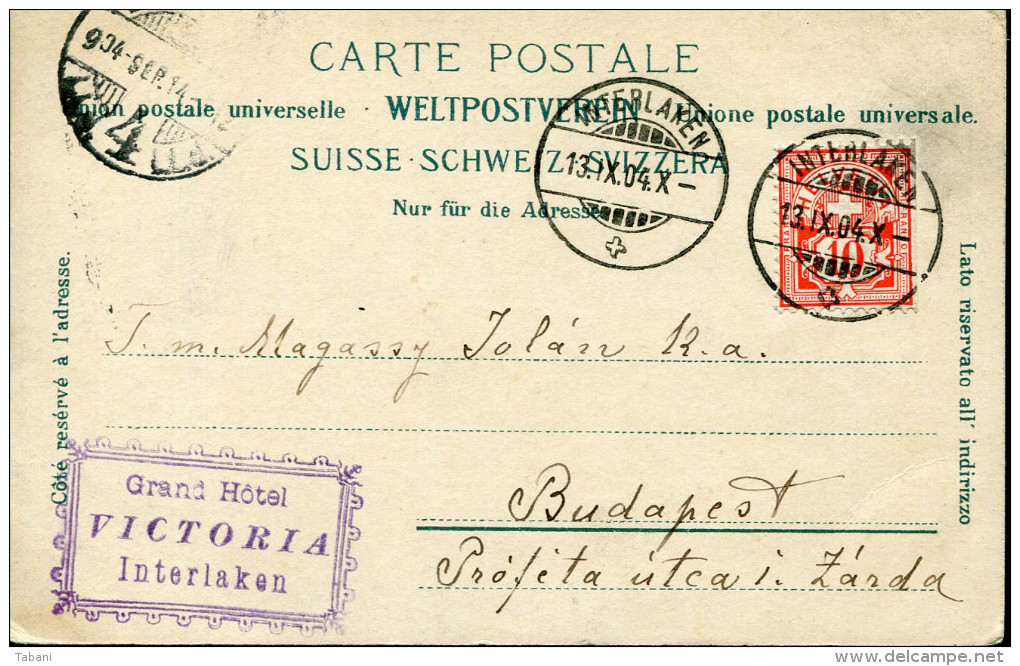 CARTE POSTALE
Union postale universelle · WELTPOSTVEREIN · Unione postale universale.
SUISSE · SCHWEIZ · SVIZZERA
Nur für die Adresse
904·SEP.14.
4
INTERLAKEN
13.IX.04.X–
INTERLAKEN
13.IX.04.X–
HELVETIA
FRANCO
10
Côté resérvé à l'adresse.
Lato riservato all' indirizzo
T. m. Magassy Jolán K. a.
Budapest
Próféta útca i. Zárda
Grand Hôtel
VICTORIA
Interlaken
Tabani
www.delcampe.net